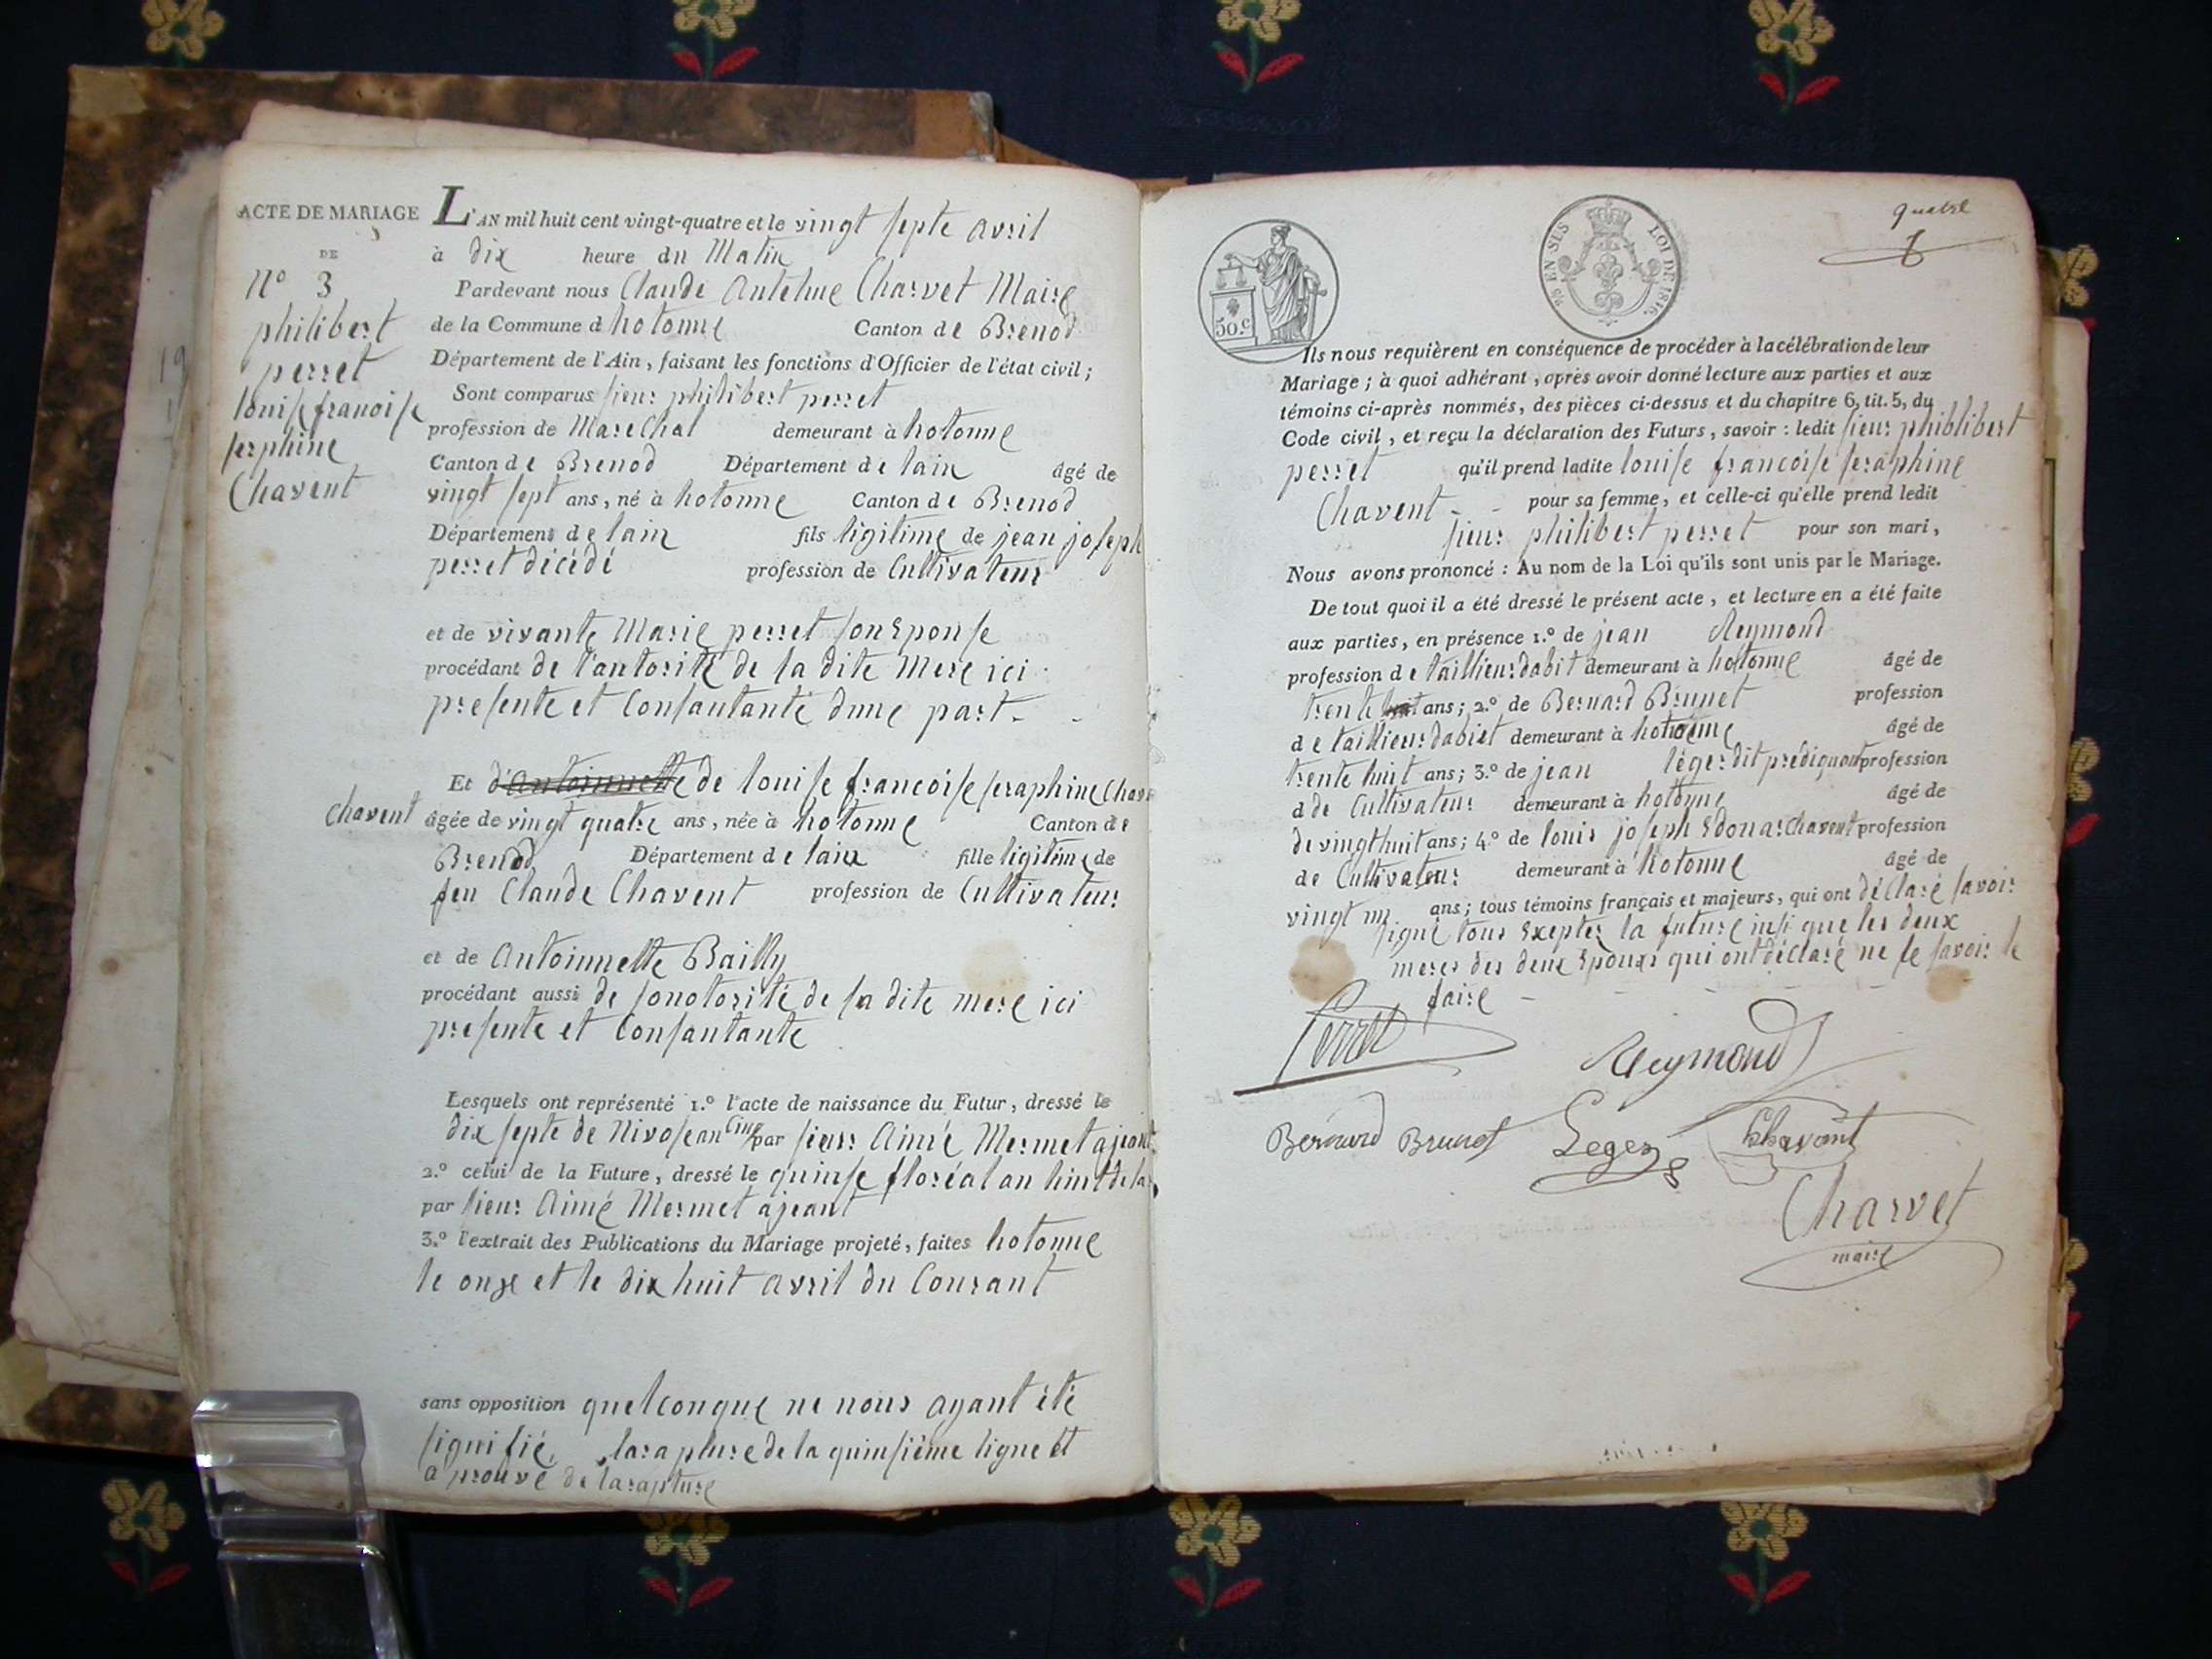 ACTE DE MARIAGE
DE
N° 3
philibert
perret
louise francoise
serphine
Chavent
L'AN mil huit cent vingt-quatre et le vingt septe avril
à dix heure du Matin
Pardevant nous Claude Antelme Charvet Maire
de la Commune d hotonne Canton de Brenod
Département de l'Ain, faisant les fonctions d'Officier de l'état civil;
Sont comparus sieur philibert perret
profession de Marechal demeurant à hotonne
Canton de Brenod Département de lain âgé de
vingt sept ans, né à hotonne Canton de Brenod
Département de lain fils ligitime de jean joseph
perret décédé profession de Cultivateur
et de vivante Marie perret son Epouse
procédant de l'autorité de sa dite Mere ici
presente et Consantante dune part - -
Et d'antoinnette de louise francoise seraphine Chav
chavent âgée de vingt quatre ans, née à hotonne Canton de
Brenod Département de lain fille ligitime de
feu Claude Chavent profession de Cultivateur
et de Antoinnette Bailly
procédant aussi de sonotorité de sa dite mere ici
presente et Consantante
Lesquels ont représenté 1.° l'acte de naissance du Futur, dressé le
dix septe de Nivose an Cinq par sieur Aimé Mermet ajeant
2.° celui de la Future, dressé le quinse floréal an huit de la
par sieur Aimé Mermet ajeant
3.° l'extrait des Publications du Mariage projeté, faites hotonne
le onze et le dix huit avril du Courant
sans opposition quelconque ne nous ayant été
signifié, larapture de la quinsième ligne et
aprouvé de larapture
quatre
50.c
EN SUS
LOI DE 1816.
Ils nous requièrent en conséquence de procéder à la célébration de leur
Mariage; à quoi adhérant, après avoir donné lecture aux parties et aux
témoins ci-après nommés, des pièces ci-dessus et du chapitre 6, tit. 5, du
Code civil, et reçu la déclaration des Futurs, savoir : ledit sieur phiblibert
perret qu'il prend ladite louise francoise seraphine
Chavent - - pour sa femme, et celle-ci qu'elle prend ledit
sieur philibert perret pour son mari,
Nous avons prononcé : Au nom de la Loi qu'ils sont unis par le Mariage.
De tout quoi il a été dressé le présent acte, et lecture en a été faite
aux parties, en présence 1.° de jean Reymond
profession de taillieurdabit demeurant à hotonne âgé de
trente ans; 2.° de Bernard Brunet profession
de taillieurdabiet demeurant à hotonne âgé de
trente huit ans; 3.° de jean léger dit profession
d de Cultivateur demeurant à hotonne âgé de
de vingt huit ans; 4.° de louis joseph Edouar chavent profession
de Cultivateur demeurant à hotonne âgé de
vingt ans; tous témoins français et majeurs, qui ont déclaré savoir
signé tous Exepter la future insi que les deux
meres des deux Epouxs qui ont déclaré ne le savoir le
faire - - - - -
Perret
Reymond
Bernard Brunet Leger Chavent
Charvet
maire